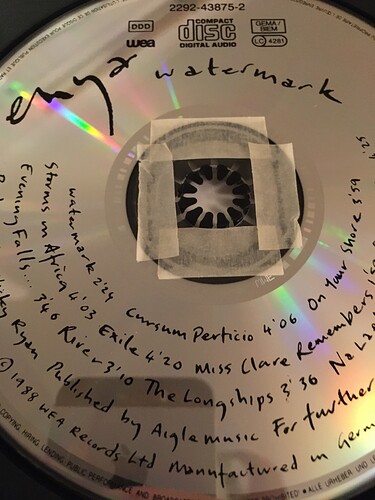 2292-43875-2
DDD
wea
COMPACT
disc
DIGITAL AUDIO
GEMA/
BIEM
LC 4281
enya watermark
watermark 2'24 Cursum Perficio 4'06 On Your Shore 3'59
Storms in Africa 4'03 Exile 4'20 Miss Clare Remembers
Evening Falls... 3'46 River 3'10 The Longships 3'36 Na La
Ryan Published by Aigle music For further
© 1988 WEA Records Ltd Manufactured in Germ
COPYING, HIRING, LENDING, PUBLIC PERFORMANCE AND BROADCASTING
• ALLE URHEBER UND